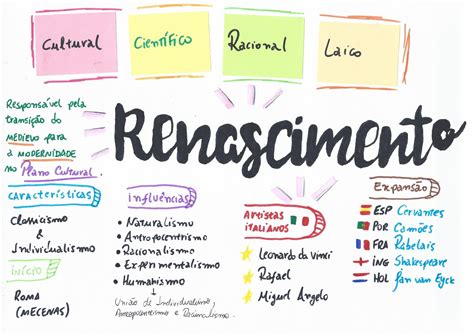 Cultural
Científico
Racional
Laico
Responsável pela
transição do
MEDIEVO para
a MODERNIDADE
no Plano Cultural.
Renascimento
características
Classicismo
&
Individualismo
início
ROMA
(MECENAS)
influências
• Naturalismo
• Antropocentrismo
• Racionalismo
• Experimentalismo
• Humanismo
União de Individualismo,
Antropocentrismo e Racionalismo.
ARtistas
italianos
Leonardo da Vinci
Rafael
Miguel Angelo
Expansão
ESP Cervantes
POR Camões
FRA Rabelais
ING Shakespeare
HOL Jan van Eyck